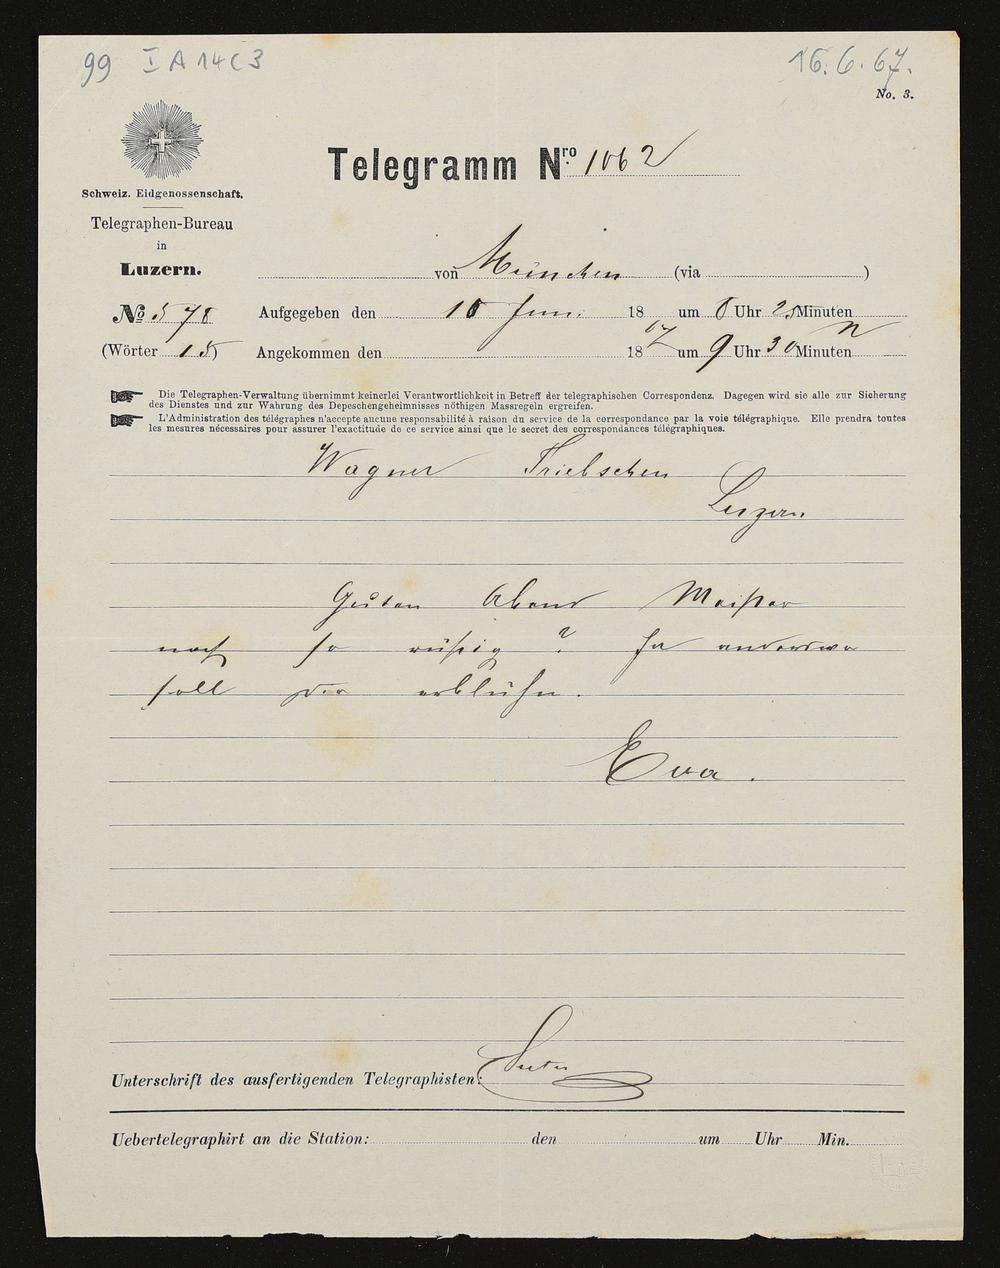 99 I A 14 c 3
16. 6. 67.
No. 3.
Telegramm Nro. 1062
Schweiz. Eidgenossenschaft.
Telegraphen-Bureau
in
Luzern.
von München (via )
No 578 Aufgegeben den 16 Juni 18 um 8 Uhr 25 Minuten
(Wörter 15) Angekommen den 1867 um 9 Uhr 30 Minuten n
Die Telegraphen-Verwaltung übernimmt keinerlei Verantwortlichkeit in Betreff der telegraphischen Correspondenz. Dagegen wird sie alle zur Sicherung
des Dienstes und zur Wahrung des Depeschengeheimnisses nöthigen Massregeln ergreifen.
L'Administration des télégraphes n'accepte aucune responsabilité à raison du service de la correspondance par la voie télégraphique. Elle prendra toutes
les mesures nécessaires pour assurer l'exactitude de ce service ainsi que le secret des correspondances télégraphiques.
Wagner Triebschen
Luzern
Guten Abend Meister
noch so rüstig? Ja anderswo
soll er erblühn.
Eva.
Unterschrift des ausfertigenden Telegraphisten: Suter
Uebertelegraphirt an die Station: den um Uhr Min.